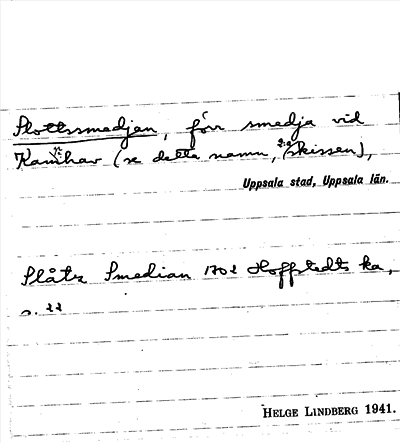 Slottssmedjan, förr smedja vid
Kamnhav (se detta namn, 2:a skissen),
Uppsala stad, Uppsala län.
Slåtz Smedian 1702 Hoffstedts ka,
s. 22
HELGE LINDBERG 1941.